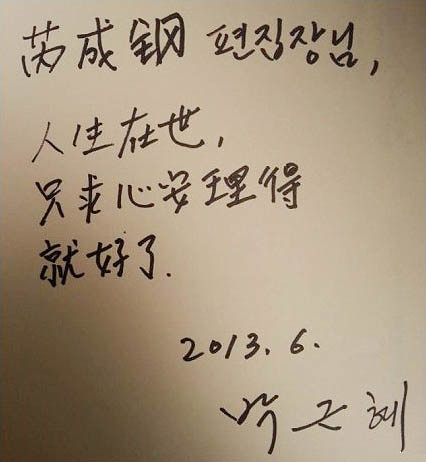 芮成钢 편집장님,
人生在世,
只求心安理得
就好了.
2013. 6.
박근혜